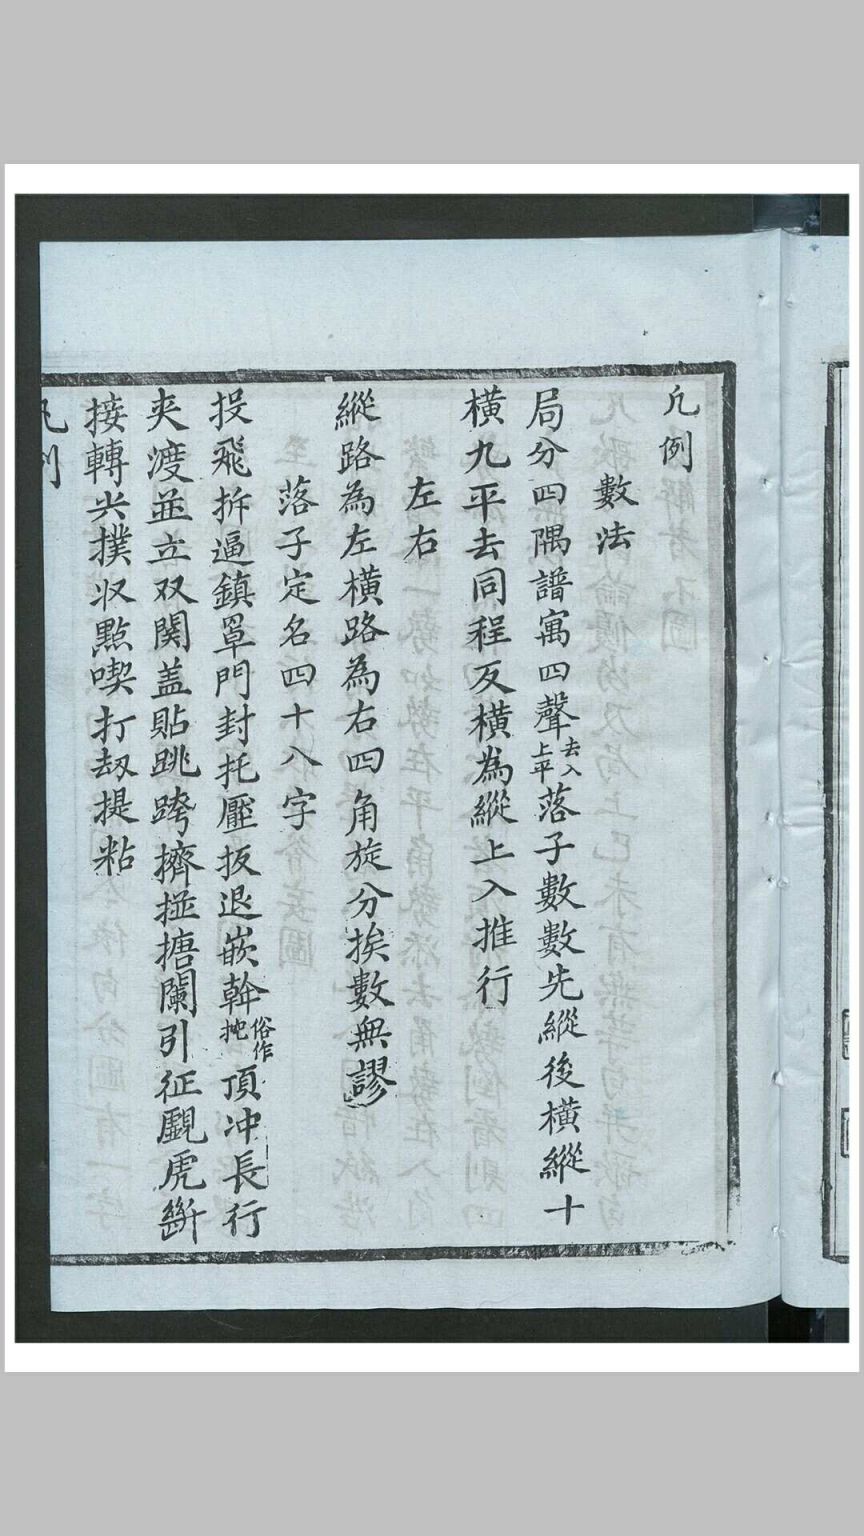 凡例
數法
局分四隅譜寓四聲去入上平落子數數先縱後橫縱十
橫九平去同程反橫為縱上入推行
左右
縱路為左橫路為右四角旋分挨數無謬
落子定名四十八字
投飛拆逼鎮罩門封托壓扳退嵌幹俗作扡頂冲長行
夾渡並立双関盖貼跳跨擠掽搪闌引征覷虎斷
接轉尖撲収點喫打刼提粘
凡例